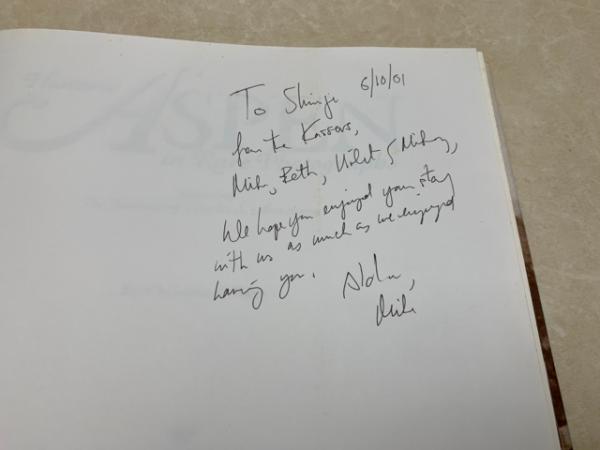 To Shinji 6/10/01
from the Kassars,
Mike, Beth, Violet & Mickey,
We hope you enjoyed your stay
with us as much as we enjoyed
having you.
Mike